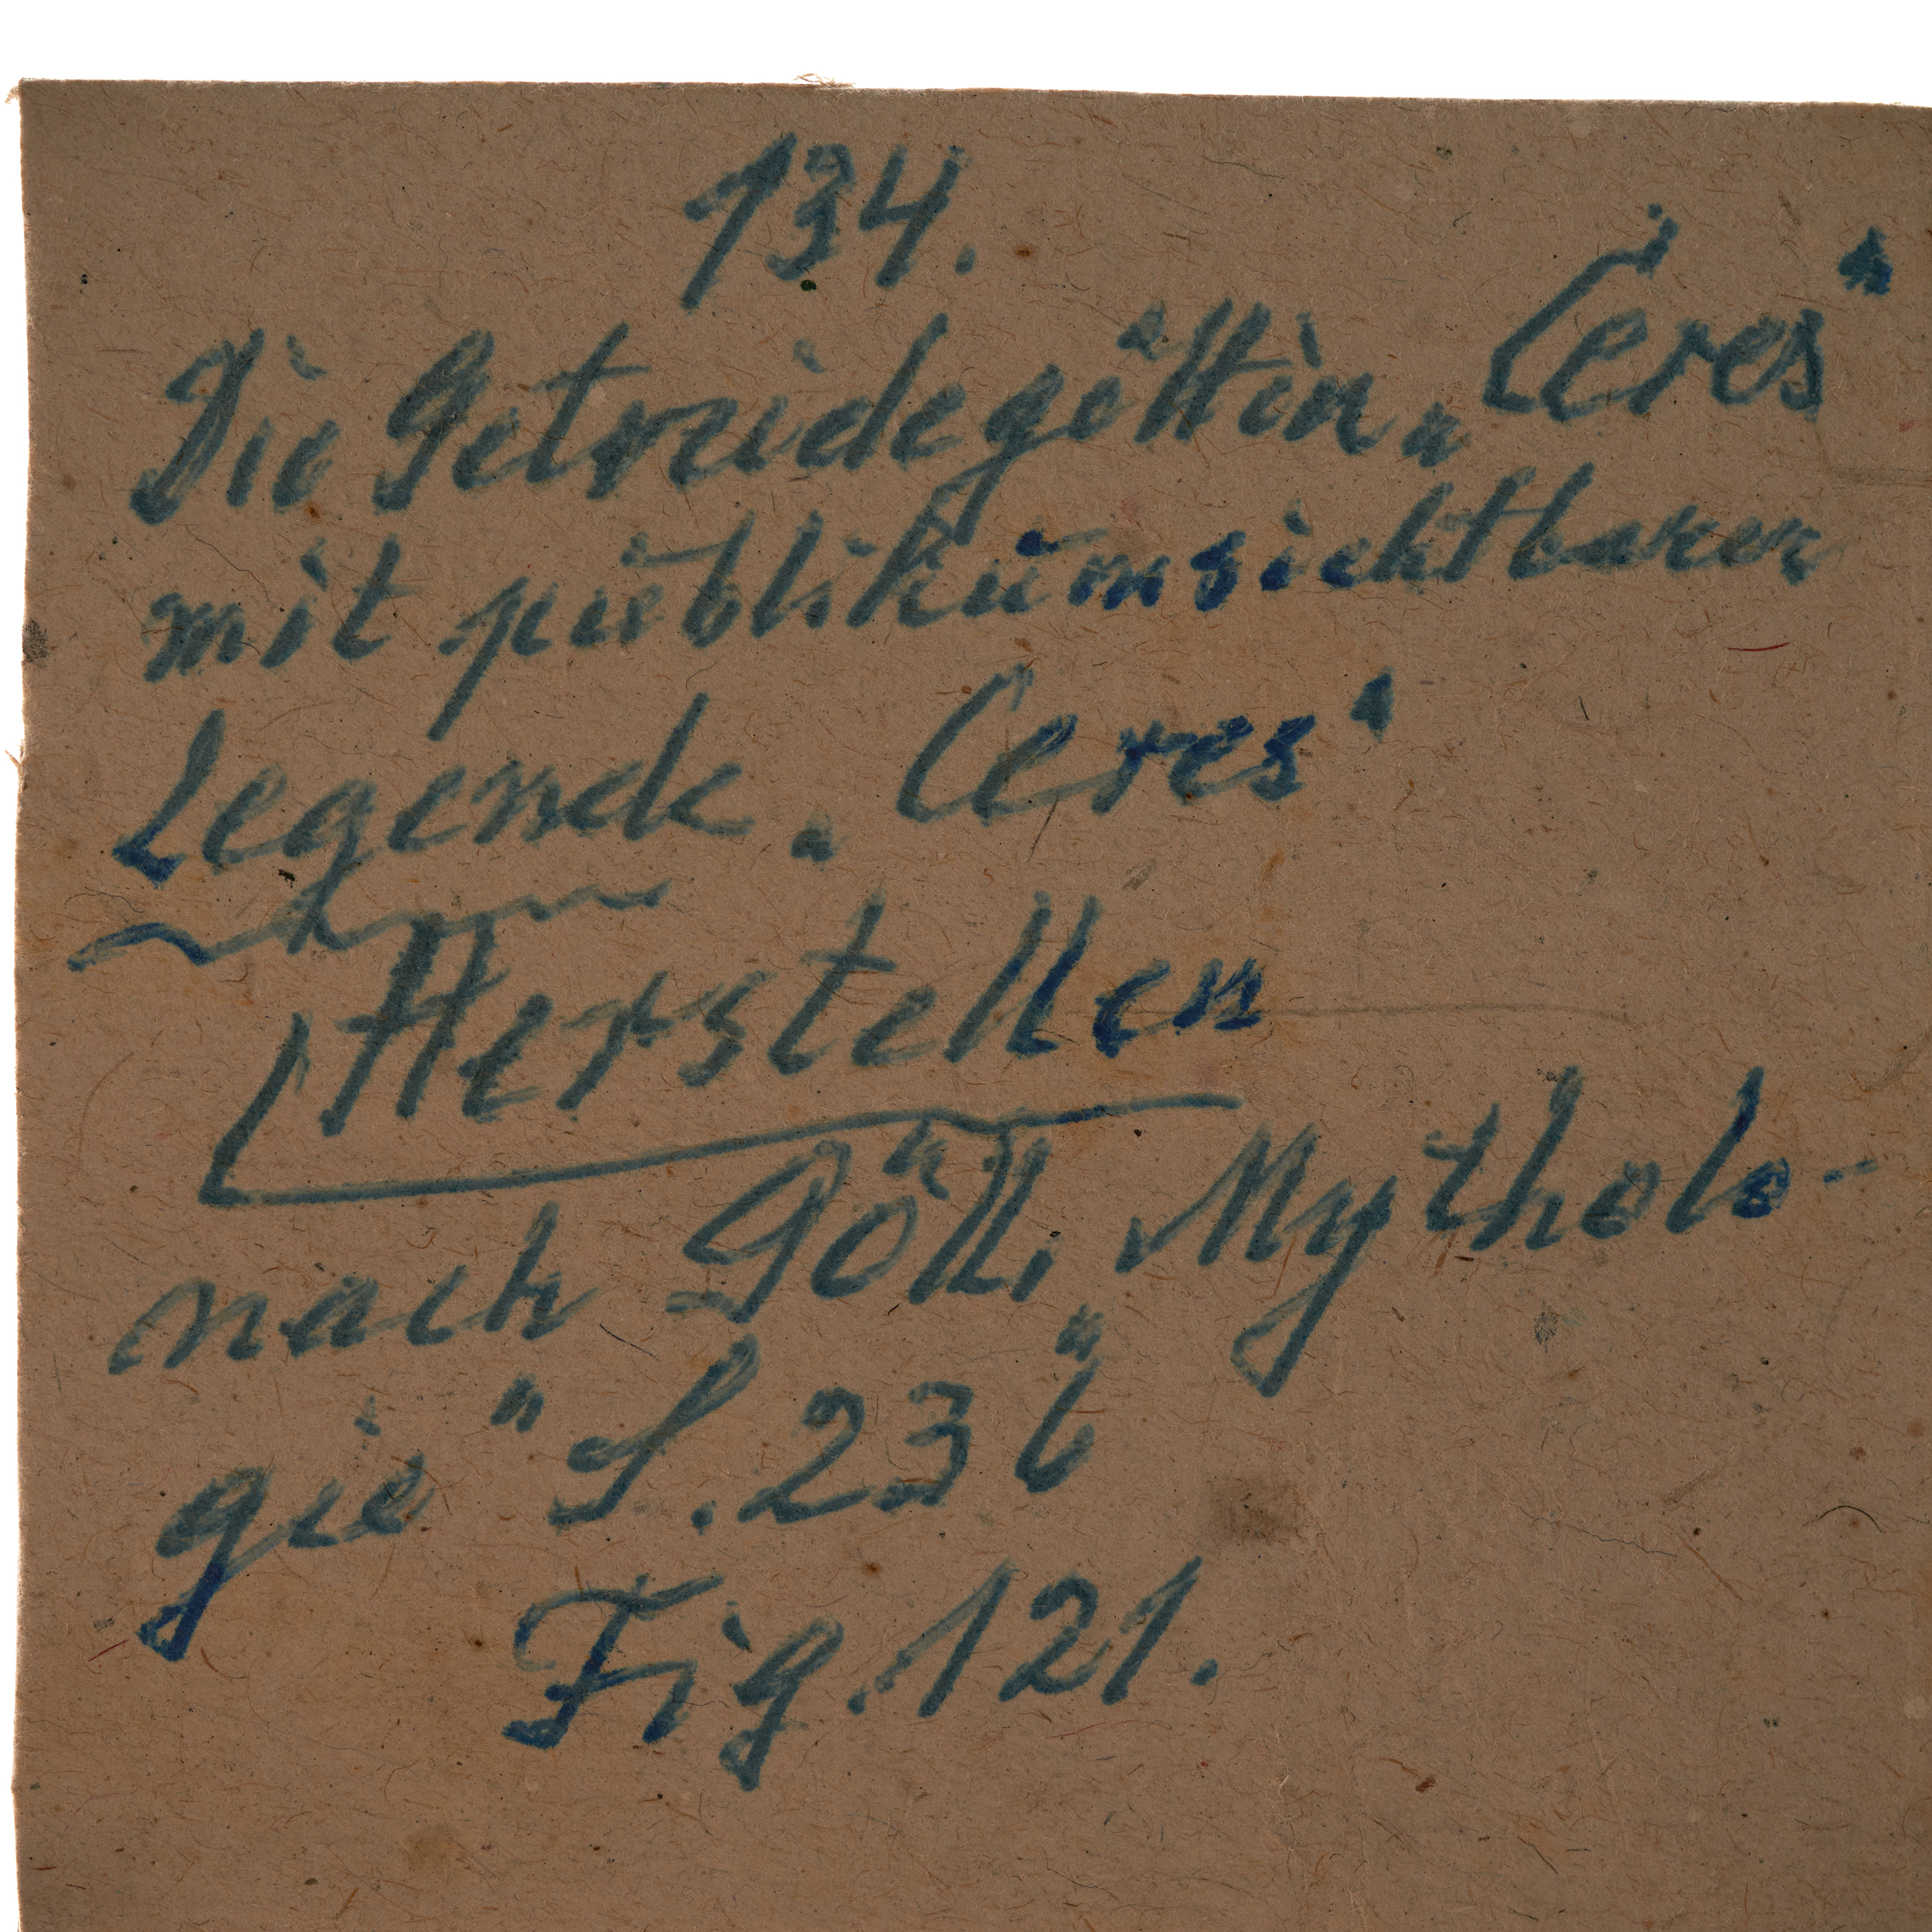 134.
Die Getreidegöttin „Ceres“
mit publikumsichtbarer
Legende „Ceres“
Herstellen
nach Göll, „Mytholo-
gie“ S. 236
Fig. 121.